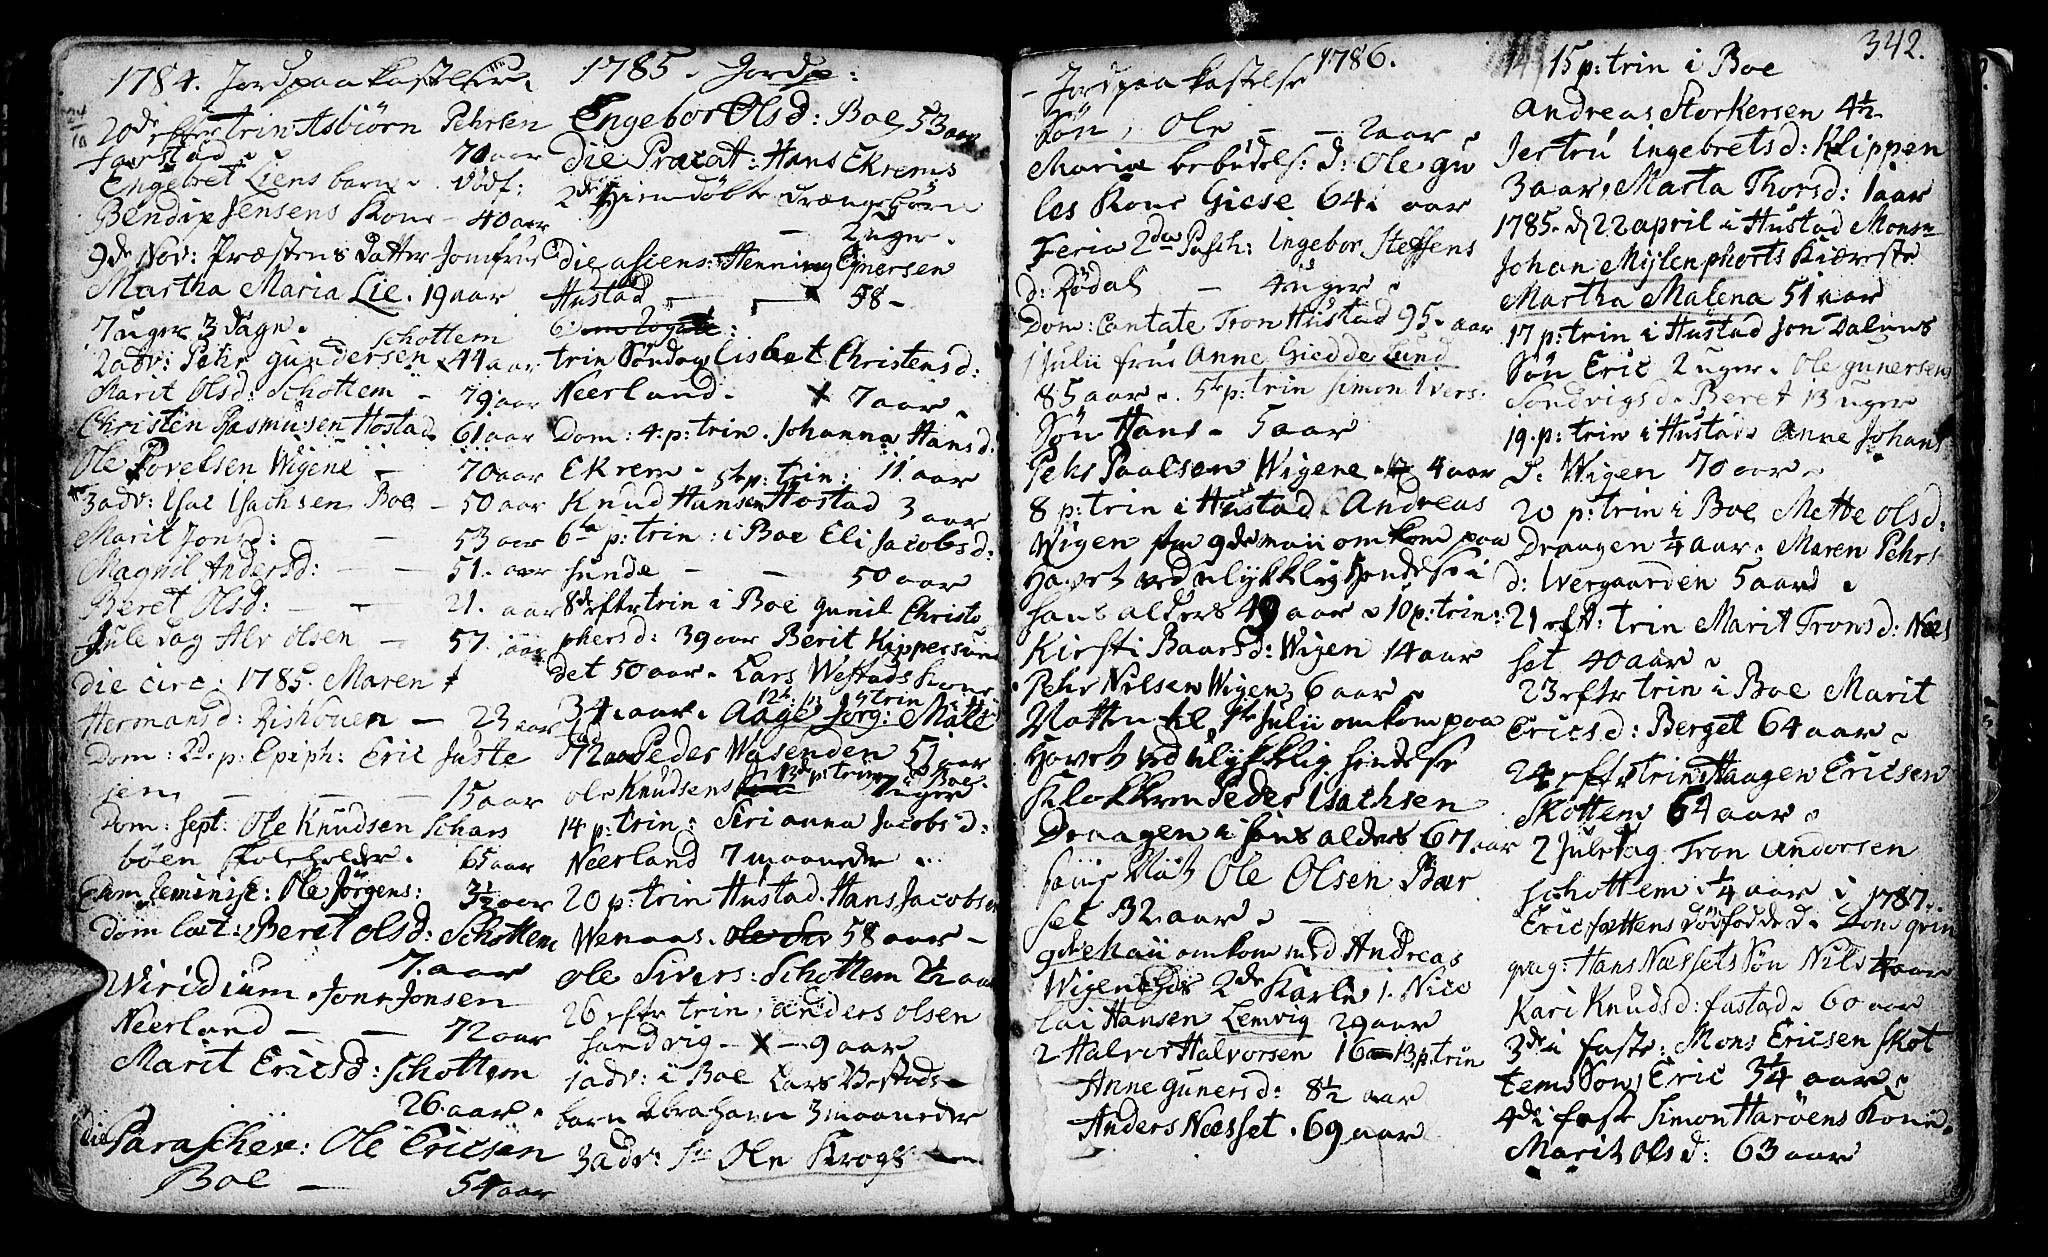 1784. Jordpaakastelser
20de efter Trin Asbiørn Pehrsen
Farstad 70 aar
Engebret Liens barn. Dödf:
Bendix Jensens Kone - 40 aar
9de Nov: Præstens Datter Jomfrue
Martha Maria Lie. 19 aar
7 uger 3 dage.
2 adv: Pehr Gundersen Schottem 44 aar
Marit Olsd: Schottem - 79 aar
Christen Rasmusen Hostad 61 aar
Ole Povelsen Wigene - 70 aar
3 adv: Isac Isachsen Boe - 50 aar
Marit Jonsd: - - 53 aar
Magnil Andersd: - - 51. aar
Beret Olsd: - - 21. aar
Jule dag Alv Olsen - 57. aar
die circ: 1785. Maren
Hermansd: Rishouen - 23 aar
Dom: 2d. p: Epiph: Eric Juste
jens - - - 15 aar
Dom: sept: Ole Knudsen Schars
böen skoleholder. 65 aar
Dom Reminisc: Ole Jörgens: 3½ aar
Dom læt: Beret Olsd: Schottem
7. aar
Viridium. Jon Jonsen
Neerland - - 72 aar
Marit Ericsd: Schottem
26. aar.
die Parascheve: Ole Ericsen
Boe - 54 aar
1785. Jordp:
Engebor Olsd: Boe, 53 aar
die Pracat: Hans Ekrems
2de Hiemdöbte drængebörn
- 2 uger.
die ascens: Henning Ejnersen
Hustad - - 58 -
trin Söndag Lisbet Christensd:
Neerland - x 7 aar.
Dom: 4. p: trin. Johanna Hansd.
Ekrem - 11. aar
5te p: trin:
Knud Hansen Hostad 3 aar
6te p: trin: i Boe Eli Jacobsd:
sunde - - 50 aar
8de eftr trin i Boe Gunil Christo
phersd: 39 aar Berit Kippersun
det 50 aar. Lars Westads Kone
34 aar. Aage Jörg: Mäls
12te p trin
72 aar Peder Wasenden 51 aar
Ole Knudsens 13de p: trin i Boe
7 uger
14 p: trin: Siri anna Jacobsd:
Neerland 7 maaneder
20 p: trin Hustad. Hans Jacobsen
Wenaas. 58 aar -
Ole Sivers: Schottem 72 aar
26 eftr trin: anders olsen
sandvig - x - 9 aar
1 adv: i Boe Lars Vestads
barn Abraham 3 maaneder
3 adv: Ole Krogs
1786.
- Jordpaakastelse
Søn, Ole - - 2 aar
Mariæ bebudels: D: Ole Gu
les Kone Giese 64 aar
Feria 2da Pasch: Ingebor Steffens
d: Rødal - 4 uger.
Dom: Cantate Tron Hustad 95. aar
1 Julii frue Anne Giedde Lund
85 aar. 5te p: trin Simon Ivers.
Søn Hans. 5 aar
Pehr Paalsen Wigene 4 aar
8 p: trin i Hustad Andreas
Wigen som 9de Maii omkom paa
Havet ved ulykklig Hendelse i
hans alders 49 aar. 10 p: trin:
Kirsti Baarsd: Wigen 14 aar
Pehr Nilsen Wigen 6 aar.
Natten til 1ste Julii omkom paa
Havet ved ulykklig hendelse
Klokkeren Peder Isachsen
Draagen i hans alders 67. aar
Ole Olsen Bær
set 32 aar. -
9de Maii omkom med Andreas
Wigen hans 2de Karle 1. Nico
lai Hansen Lemvig 29 aar
2 Halvor Halvorsen 16 13 p: trin
Anne Gunersd: 8½ aar
Anders Næsset. 69 aar
342.
15 p: trin i Boe
Andreas Storkersen 4½
Jertru Ingebretsd: Klippen
3 aar, Marta Thorsd: 1 aar
1785. d 22 april i Hustad Monsr
Johan Mylenphorts Kiæreste
Martha Malena 51 aar
17 p: trin i Hustad Jon Dalens
Søn Eric 2 uger. Ole Gunersen
Sandvigs d. Beret 13 uger
19. p: trin i Hustad Anne Johans
D: Wigen 70 aar.
20 p: trin i Boe Mette Olsd:
Draagen ¼ aar. Maren Pehrs
d: Wergaarden 5 aar.
21 eft: trin Marit Tronsd: Næs
set 40 aar.
23 eftr trin i Boe Marit
Ericsd: Berget 64 aar.
24 eftr trin Haagen Ericsen
Skottem 64 aar.
2 Juledag Tron Andorsen
Schottem ¼ aar 1787.
Eric fættens dödfödde d. Dons qvin
qvag: Hans Næssets Søn Nils ¼ aar
Kari Knudsd: fastad. 60 aar
3de i faste: Mons Ericsen Skot
tems Søn, Eric 3¼ aar.
4de i faste Simon Harøens Kone.
Marit Olsd: 63 aar